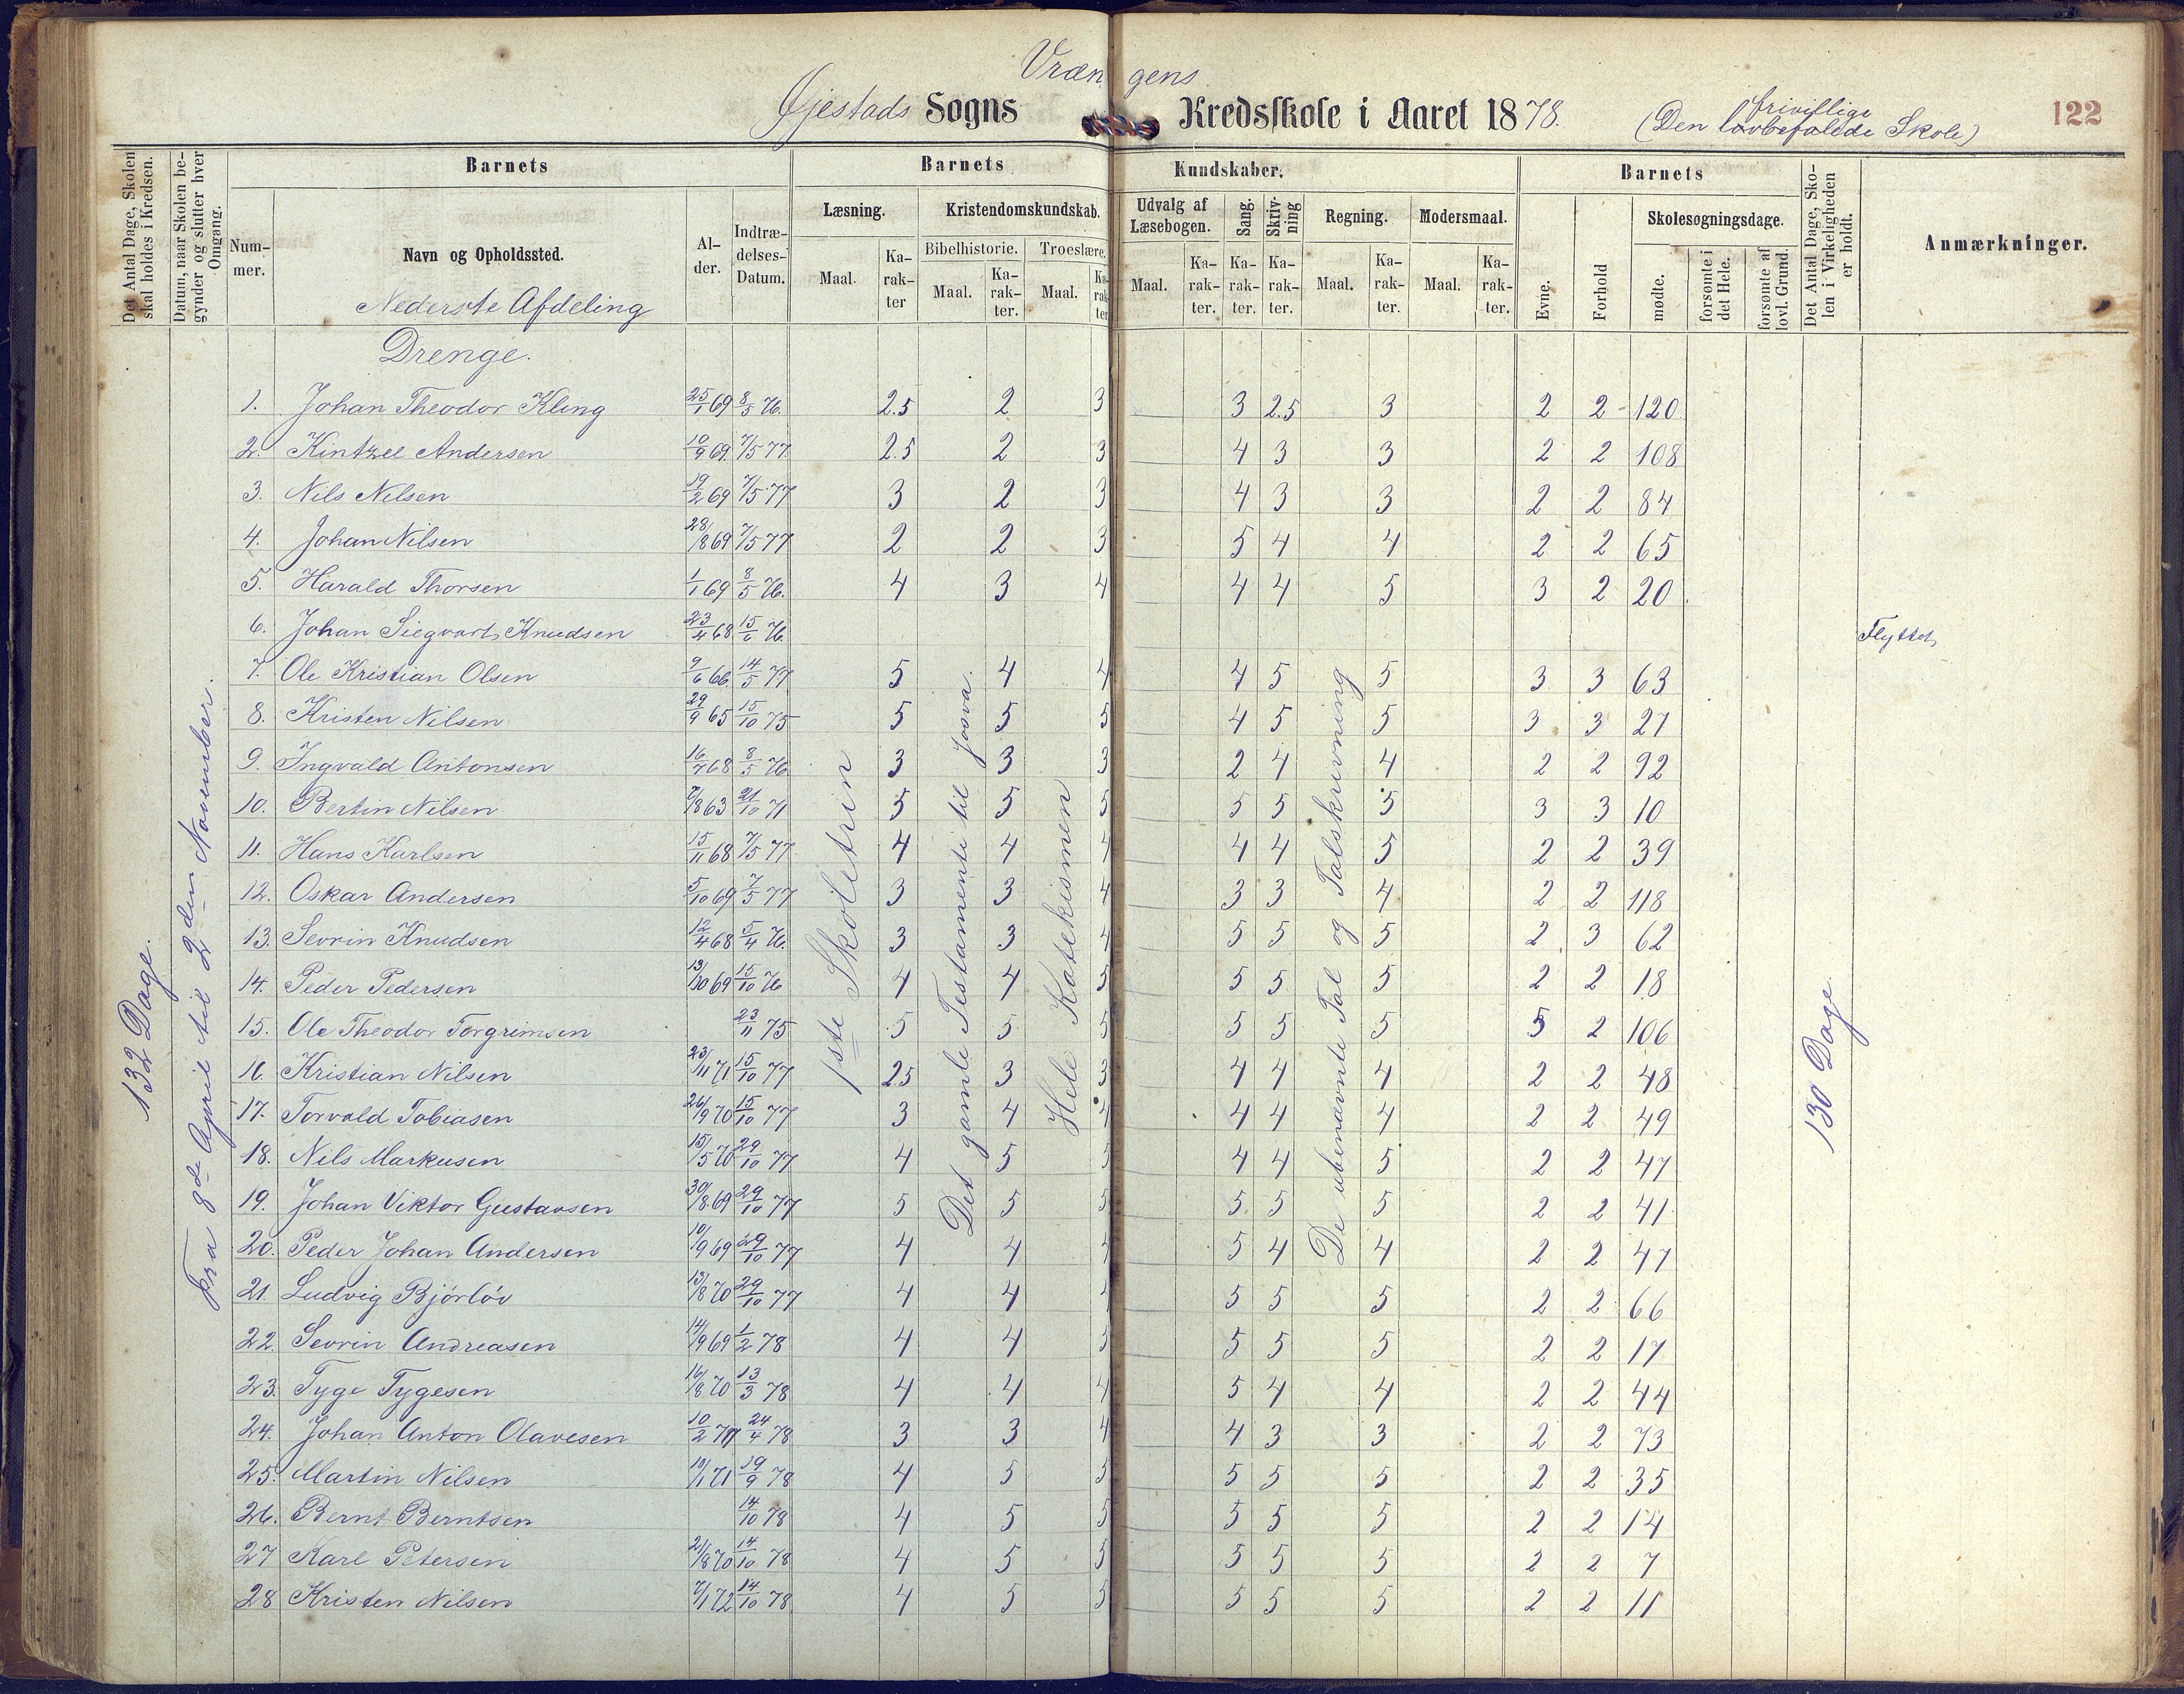 Vrængens
Øjestads Sogns Kredsskole i Aaret 1878. (Den lovbefalede frivillige Skole) 122
Det Antal Dage, Skolen skal holdes i Kredsen.
Datum, naar Skolen begynder og slutter hver Omgang.
Barnets Barnets Kundskaber. Barnets
Det Antal Dage, Skolen i Virkeligheden er holdt.
Anmærkninger.
Nummer. Navn og Opholdssted. Alder. Indtrædelses-Datum.
Læsning. Kristendomskundskab. Udvalg af Læsebogen. Sang. Skrivning Regning. Modersmaal. Evne. Forhold Skolesøgningsdage.
Bibelhistorie. Troeslære.
Maal. Karakter Maal. Karakter. Maal. Karakter Maal. Karakter. Karakter. Karakter. Maal. Karakter. Maal. Karakter. mødte. forsømte i det Hele. forsømte af lovl. Grund.
Nederste Afdeling
Drenge.
132 Dage.
Fra 8de April til 2den November.
1ste Skoletrin
Det gamle Testamente til Josva.
Hele Katekismen
De ubenævnte Tal og Talskrivning
130 Dage
1. Johan Theodor Kling 25/1 69 8/5 76. 2.5 2 3 3 2.5 3 2 2 120
2. Kintzel Andersen 10/9 69. 7/5 77. 2.5 2 3 4 3 3 2 2 108
3. Nils Nilsen 19/2 69 7/5 77 3 2 3 4 3 3 2 2 84
4. Johan Nilsen 28/8 69 7/5 77 2 2 3 5 4 4 2 2 65
5. Harald Thorsen 1/1 69 8/5 76. 4 3 4 4 4 5 3 2 20
6. Johan Siegvart Knudsen 23/4 68 15/6 76. Flyttet
7. Ole Kristian Olsen 9/6 66. 14/5 77 5 4 4 4 5 5 3 3 63
8. Kristen Nilsen 29/9 65 15/10 75 5 5 5 4 5 5 3 3 27
9. Ingvald Antonsen 16/7 68 8/5 76 3 3 3 2 4 4 2 2 92
10. Bertin Nilsen 7/8 63 21/10 71 5 5 5 5 5 5 3 3 10
11. Hans Karlsen 15/11 68 7/5 77 4 4 4 4 4 5 2 2 39
12. Oskar Andersen 5/10 69 7/5 77 3 3 4 3 3 4 2 2 118
13. Sevrin Knudsen 12/4 68 5/4 76. 3 3 4 5 5 5 2 3 62
14. Peder Pedersen 13/10 69 15/10 76 4 4 5 5 5 5 2 2 18
15. Ole Theodor Torgrimsen 23/11 75 5 5 5 5 5 5 5 2 106
16. Kristian Nilsen 23/11 71 15/10 77 2.5 3 3 4 4 4 2 2 48
17. Torvald Tobiasen 26/9 70 15/10 77 3 4 4 4 4 4 2 2 49
18. Nils Markusen 15/5 70 29/10 77 4 5 5 4 4 5 2 2 47
19. Johan Viktor Gustavsen 30/8 69 29/10 77 5 5 5 5 5 5 2 2 41
20. Peder Johan Andersen 10/9 69 29/10 77 4 4 4 5 4 4 2 2 47
21. Ludvig Bjørløv 13/8 70 29/10 77 4 4 4 5 5 5 2 2 66
22. Sevrin Andreasen 14/9 69 1/2 78 4 4 5 5 5 5 2 2 17
23. Tyge Tygesen 16/8 70 13/3 78 4 4 4 5 4 4 2 2 44
24. Johan Anton Olavesen 10/2 24/4 78 3 3 4 4 3 3 2 2 73
25. Martin Nilsen 10/1 71 19/9 78 4 5 5 5 5 5 2 2 35
26. Bernt Berntsen 14/10 78 4 5 5 5 5 5 2 2 14
27 Karl Petersen 21/8 70 14/10 78 4 5 5 5 5 5 2 2 7
28 Kristen Nilsen 7/1 72 14/10 78 4 5 5 5 5 5 2 2 11